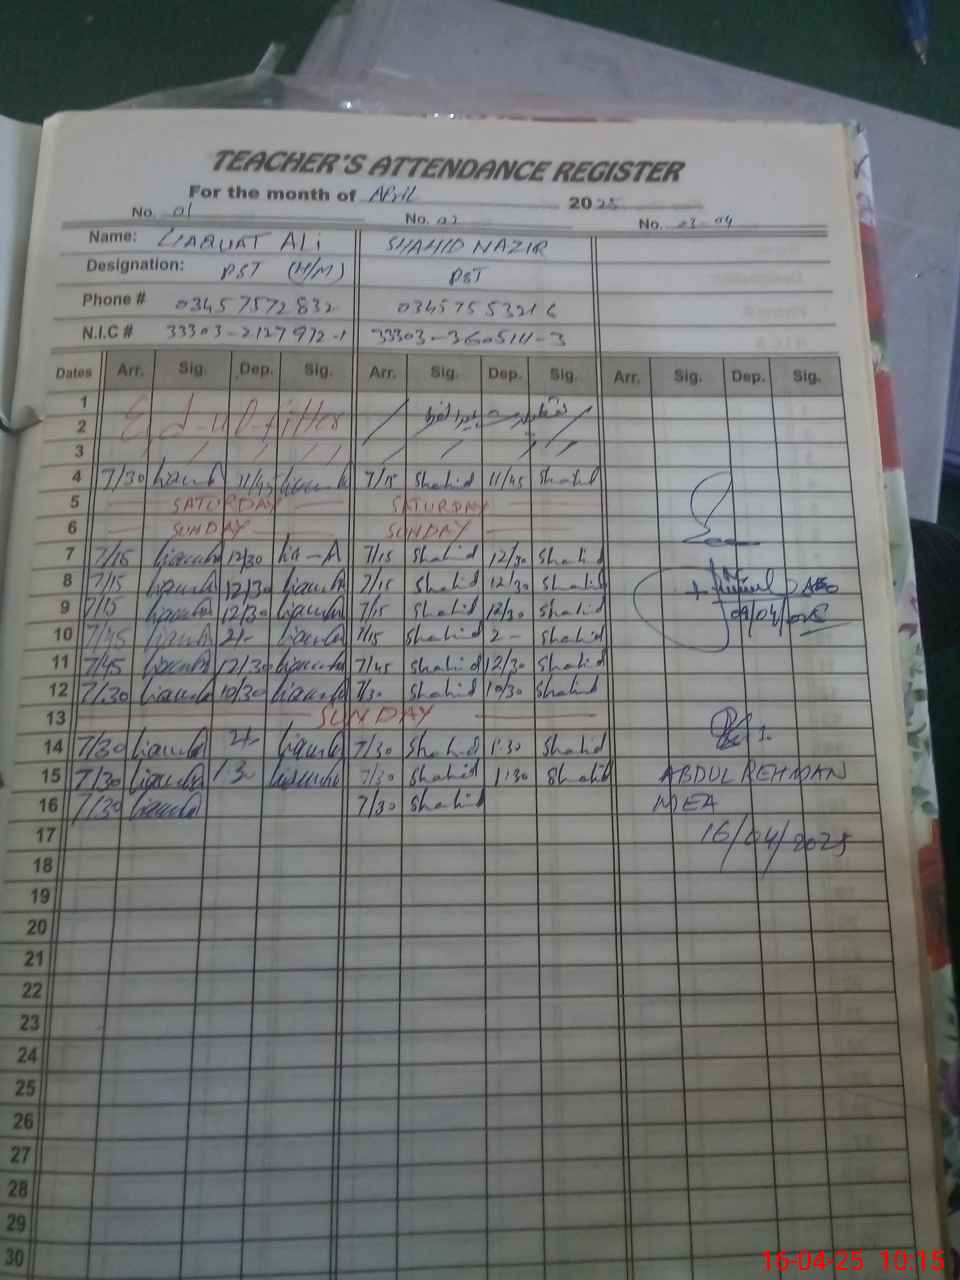 TEACHER'S ATTENDANCE REGISTER
For the month of April 2025
No. 01 No. 02 No. 03-04
Name: LIAQUAT ALi SHAHID NAZIR
Designation: PST (H/M) PST
Phone # 03457572832 03457553216
N.I.C # 33303-2127972-1 33303-3605141-3
Dates Arr. Sig. Dep. Sig. Arr. Sig. Dep. Sig. Arr. Sig. Dep. Sig.
1
2 Eid-ul-fitter
3
4 7/30 11/45 7/15 Shahid 11/45 Shahid
5 SATURDAY SATURDAY
6 SUNDAY SUNDAY
7 7/15 12/30 7/15 Shahid 12/30 Shahid
8 7/15 12/30 7/15 Shahid 12/30 Shahid AEO
9 7/15 12/30 7/15 Shahid 12/30 Shahid 09/04/2025
10 7/45 2- 7/15 Shahid 2- Shahid
11 7/45 12/30 7/45 Shahid 12/30 Shahid
12 7/30 10/30 7/30 Shahid 10/30 Shahid
13 SUNDAY
14 7/30 2- 7/30 Shahid 1:30 Shahid
15 7/30 1:30 7/30 Shahid 1:30 Shahid ABDUL REHMAN
16 7/30 7/30 Shahid MEA
17 16/04/2025
18
19
20
21
22
23
24
25
26
27
28
29
30
16-04-25 10:15